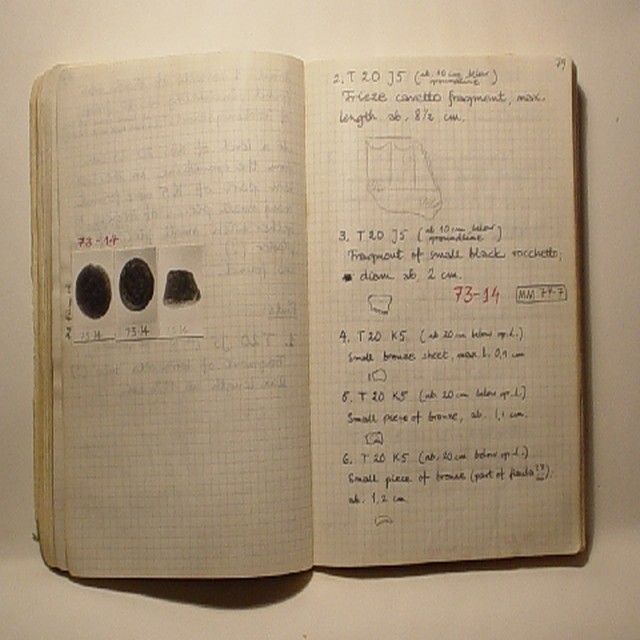 73-14
73-14
73-14
73-14
79
2. T 20 J5 (ab. 10 cm below groundline)
Frieze cavetto fragment, max.
length ab. 8½ cm.
3. T 20 J5 (ab 10 cm below groundline)
Fragment of small black rocchetto;
diam ab. 2 cm.
73-14 MM 74-7
4. T 20 K5 (ab 20 cm below gr.l.)
Small bronze sheet, max l. 0,9 cm
5. T 20 K5 (ab. 20 cm below gr.l.)
Small piece of bronze, ab. 1,1 cm.
6. T 20 K5 (ab. 20 cm below gr.l.)
Small piece of bronze (part of fibula
ab. 1,2 cm